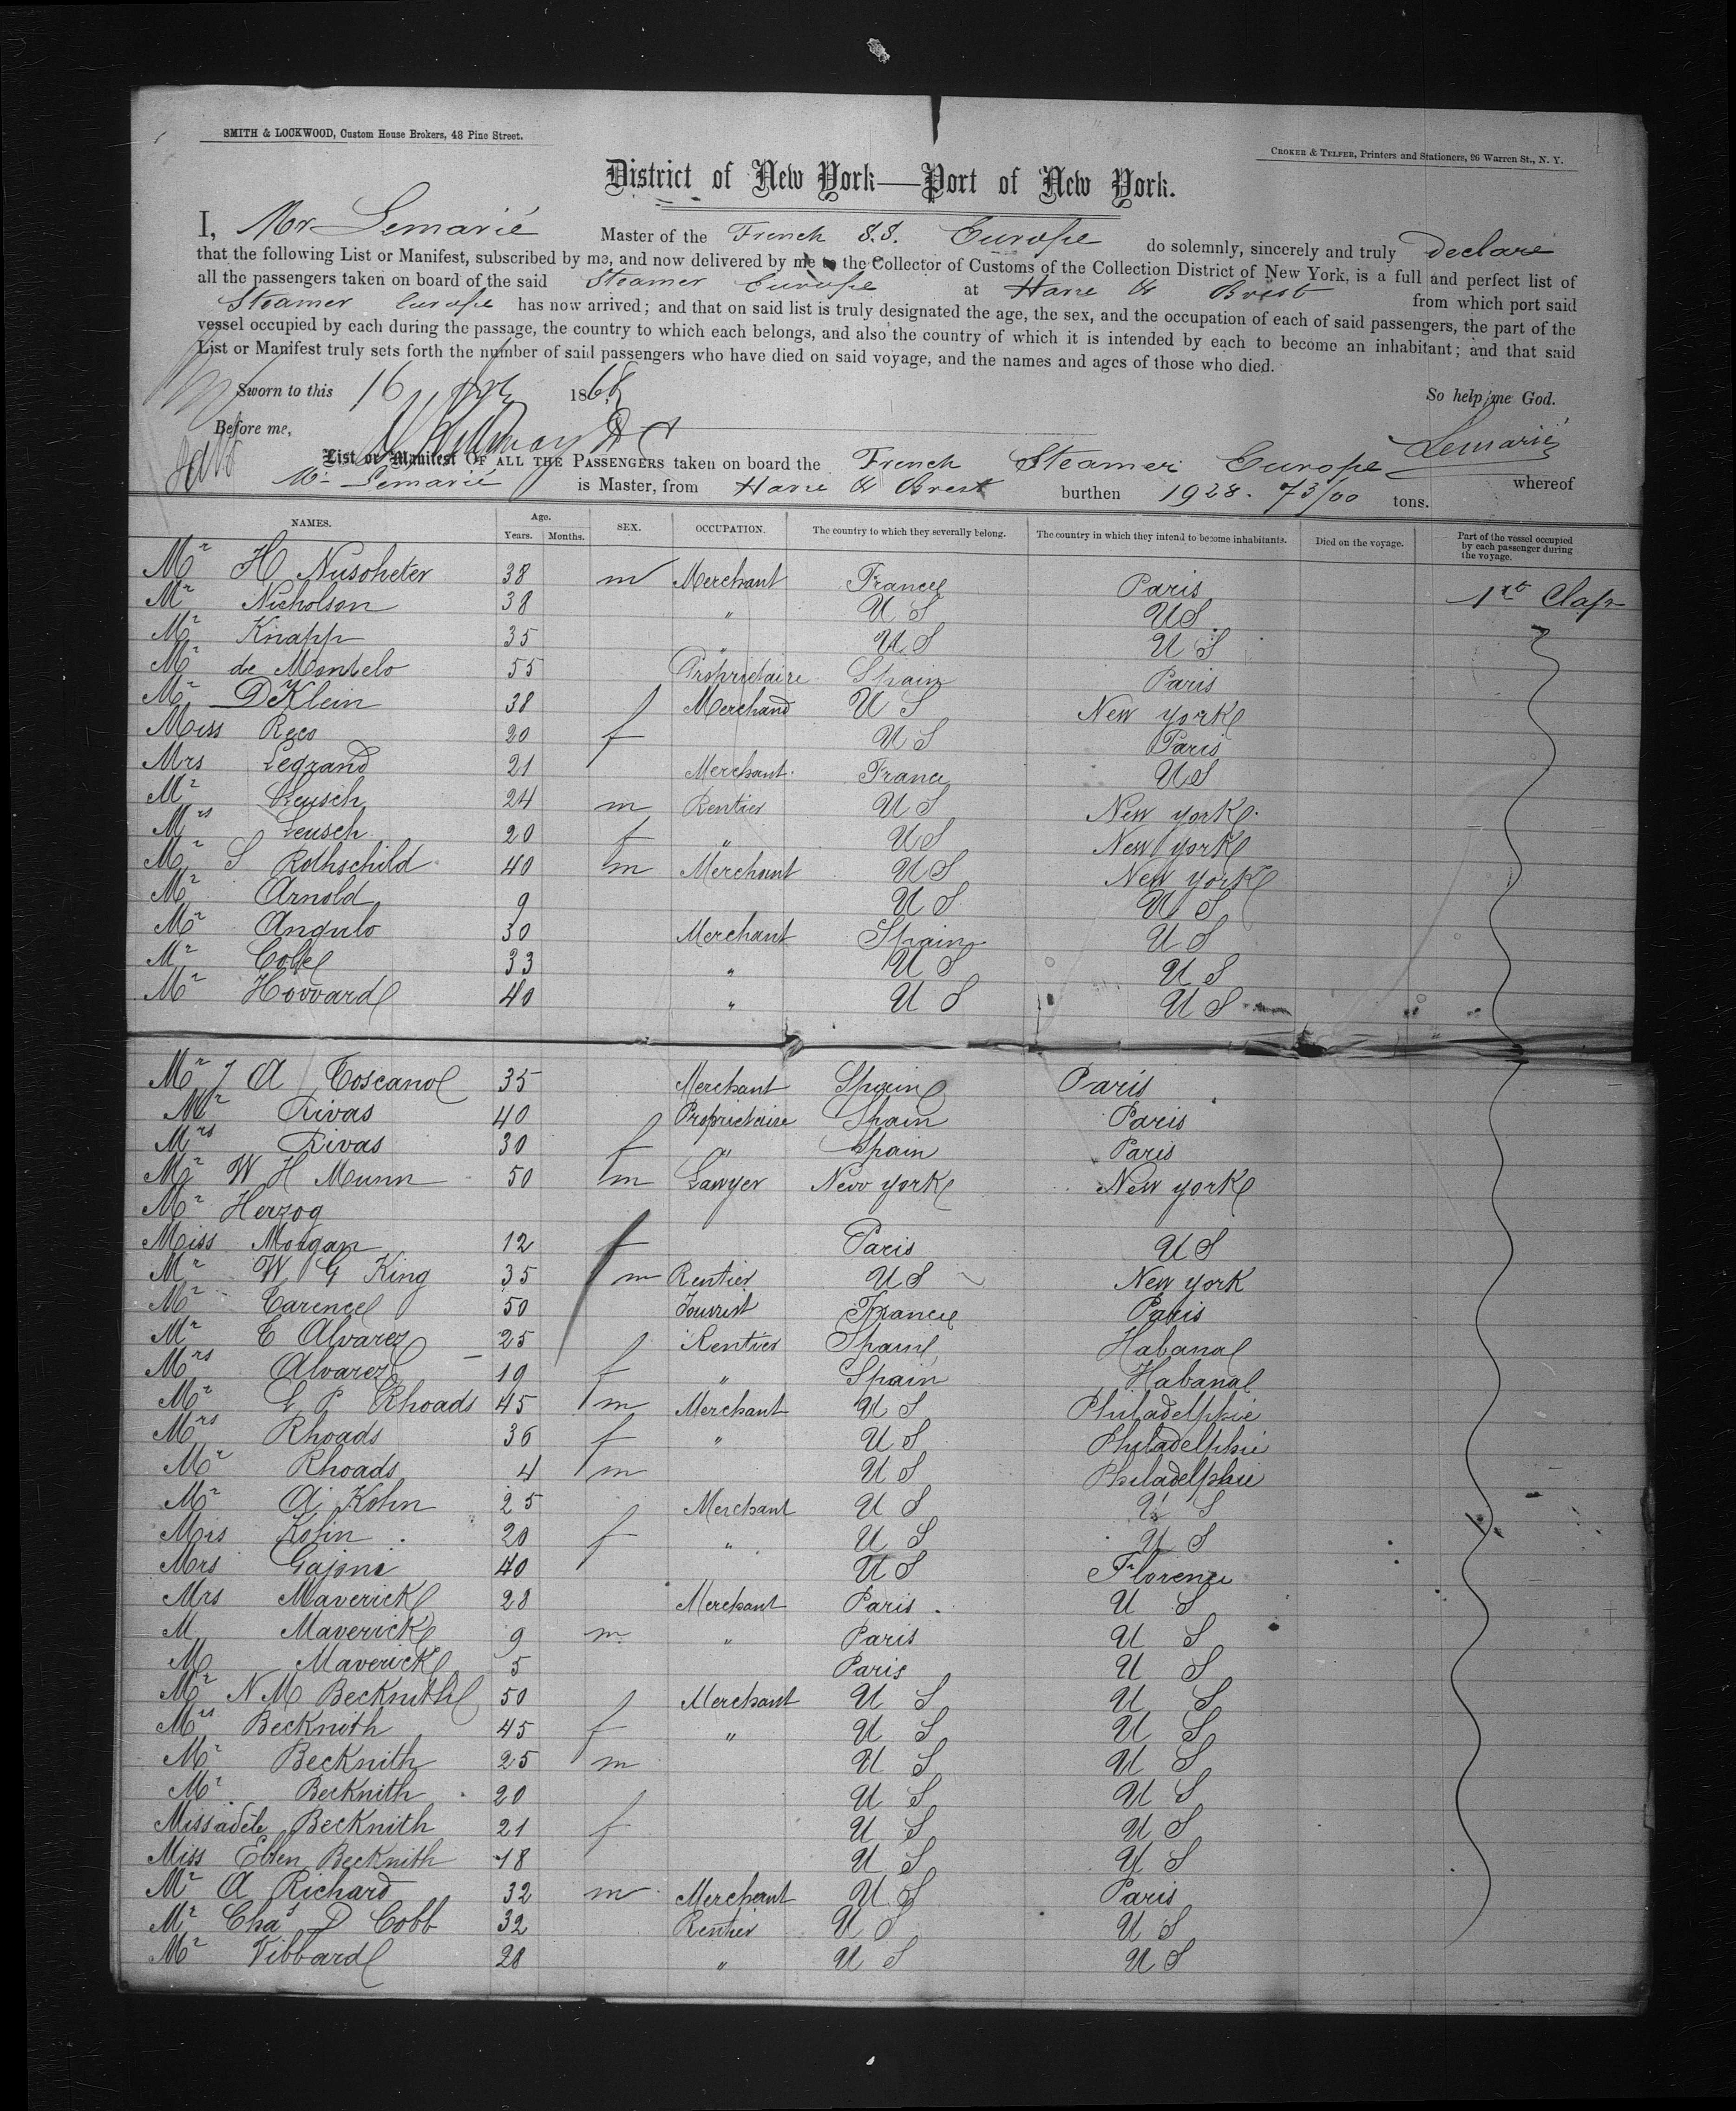 SMITH & LOCKWOOD, Custom House Brokers, 48 Pine Street.
CROKER & TELFER, Printers and Stationers, 96 Warren St., N. Y.
District of New York—Port of New York.
I, Mr Lemarié Master of the French S.S. Europe do solemnly, sincerely and truly declare
that the following List or Manifest, subscribed by me, and now delivered by me to the Collector of Customs of the Collection District of New York, is a full and perfect list of
all the passengers taken on board of the said Steamer Europe at Havre & Brest from which port said
Steamer Europe has now arrived; and that on said list is truly designated the age, the sex, and the occupation of each of said passengers, the part of the
vessel occupied by each during the passage, the country to which each belongs, and also the country of which it is intended by each to become an inhabitant; and that said
List or Manifest truly sets forth the number of said passengers who have died on said voyage, and the names and ages of those who died.
Sworn to this 16 1868 So help me God.
Before me, Lemarié
List or Manifest OF ALL THE PASSENGERS taken on board the French Steamer Europe whereof
Mr Lemarié is Master, from Havre & Brest burthen 1928. 73/00 tons.
NAMES. Age. Years. Months. SEX. OCCUPATION. The country to which they severally belong. The country in which they intend to become inhabitants. Died on the voyage. Part of the vessel occupied by each passenger during the voyage.
Mr H Nusoheter 38 m Merchant France Paris 1st Class
Mr Nicholson 38 " U S U S
Mr Knapp 35 " U S U S
Mr de Montelo 55 Proprietaire Spain Paris
Mr D Klein 38 Merchand U S New York
Miss Reco 20 f U S Paris
Mrs Legrand 21 Merchant France U S
Mr Leusch 24 m Rentier U S New York
Mrs Leusch 20 f " U S New York
Mr S Rothschild 40 m Merchant U S New York
Mr Arnold 9 U S U S
Mr Angulo 30 Merchant Spain U S
Mr 33 " U S U S
Mr Howard 40 " U S U S
Mr J A Toscano 35 Merchant Spain Paris
Mr Rivas 40 Proprietaire Spain Paris
Mrs Rivas 30 f " Spain Paris
Mr W H Munn 50 m Lawyer New York New York
Mr Herzog
Miss Morgan 12 f Paris U S
Mr W G King 35 m Rentier U S New York
Mr Carence 50 Tourist France Paris
Mr E Alvarez 25 Rentier Spain Habana
Mrs Alvarez 19 f " Spain Habana
Mr G P Rhoads 45 m Merchant U S Philadelphie
Mrs Rhoads 36 f " U S Philadelphie
Mr Rhoads 4 m U S Philadelphie
Mr A Kohn 25 Merchant U S U S
Mrs Kohn 20 f " U S U S
Mrs Gajoni 40 U S Florence
Mrs Maverick 28 Merchant Paris U S
M Maverick 9 m " Paris U S
M Maverick 5 Paris U S
Mr N M Becknith 50 Merchant U S U S
Mrs Becknith 45 f " U S U S
Mr Becknith 25 m U S U S
Mr Becknith 20 U S U S
Miss adèle Becknith 21 f U S U S
Miss Ellen Becknith 18 U S U S
Mr A Richard 32 m Merchant U S Paris
Mr Chas D Cobb 32 Rentier U S U S
Mr Vibbard 28 " U S U S